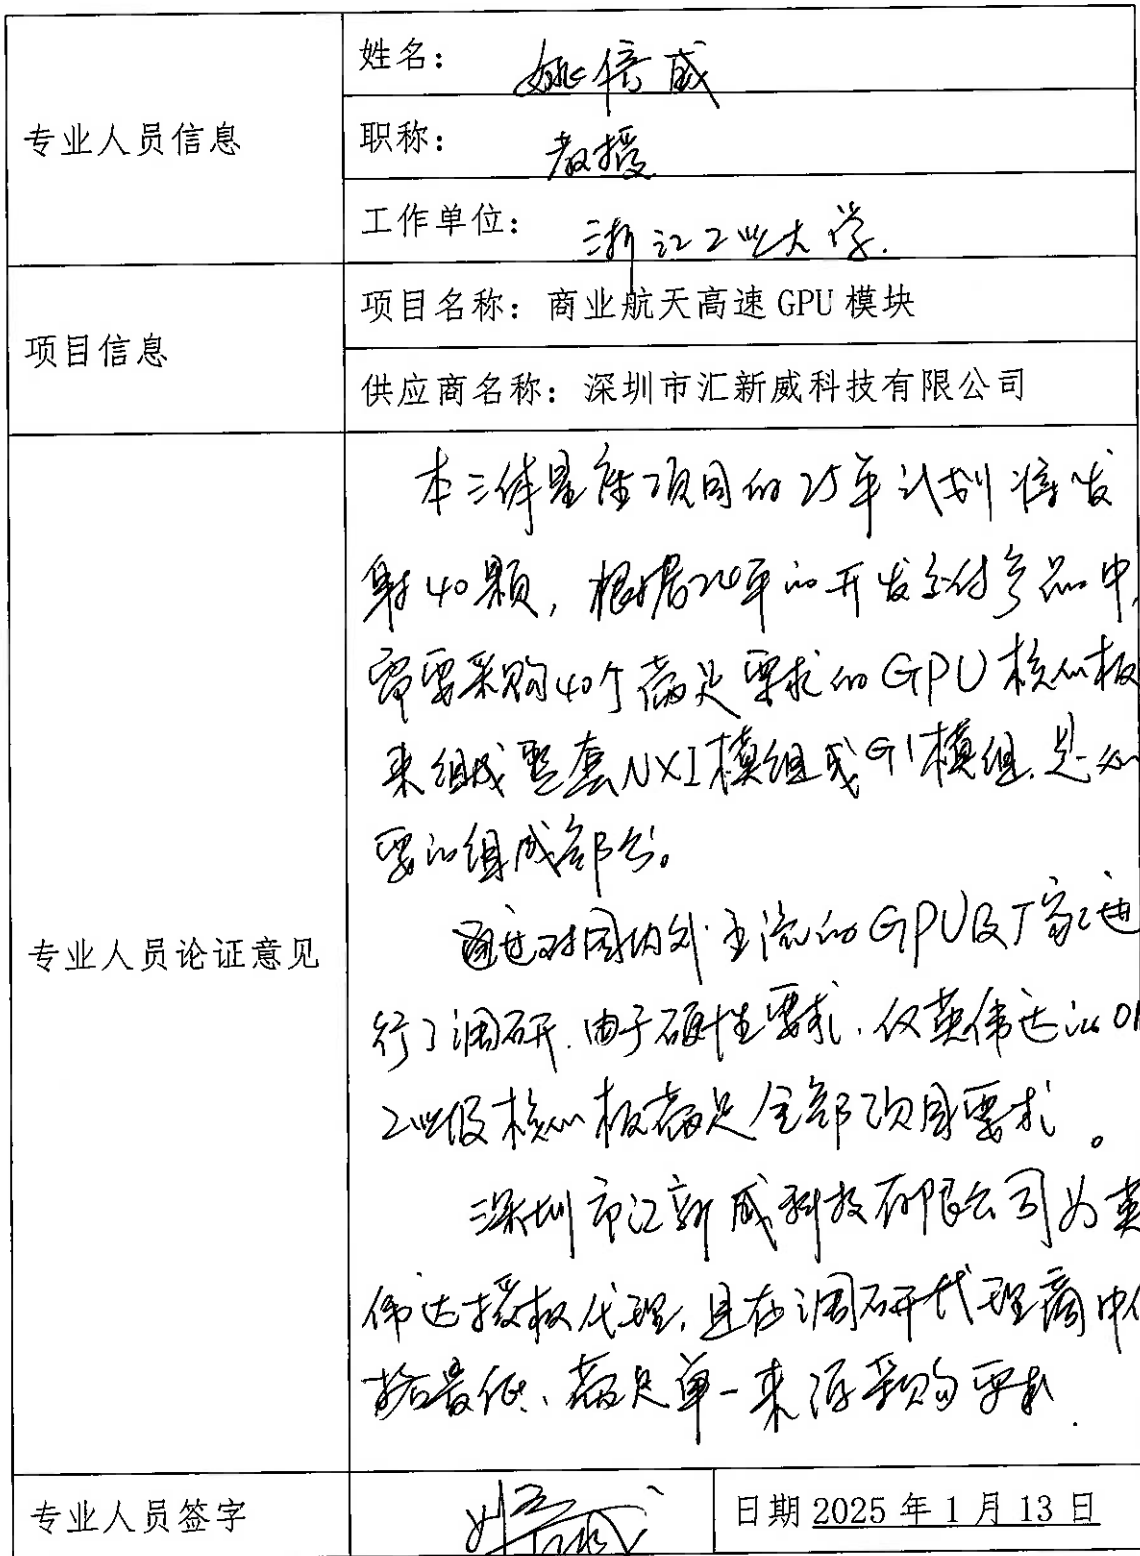 专业人员信息
姓名：姚信威
职称：教授
工作单位：浙江工业大学.
项目信息
项目名称：商业航天高速 GPU 模块
供应商名称：深圳市汇新威科技有限公司
专业人员论证意见
本三体星座项目的25年计划将发
射40颗，根据24年的开发交付产品中，
需要采购40个满足要求的GPU核心板
来组成整套NX1模组或G1模组，是必
要的组成部分。
通过对国内外主流的GPU及厂家进
行了调研，由于硬性要求，仅英伟达的
工业级核心板满足全部项目要求。
深圳市汇新威科技有限公司为英
伟达授权代理，且在调研代理商中
格最低、满足单一来源采购要求.
专业人员签字
日期 2025 年 1 月 13 日